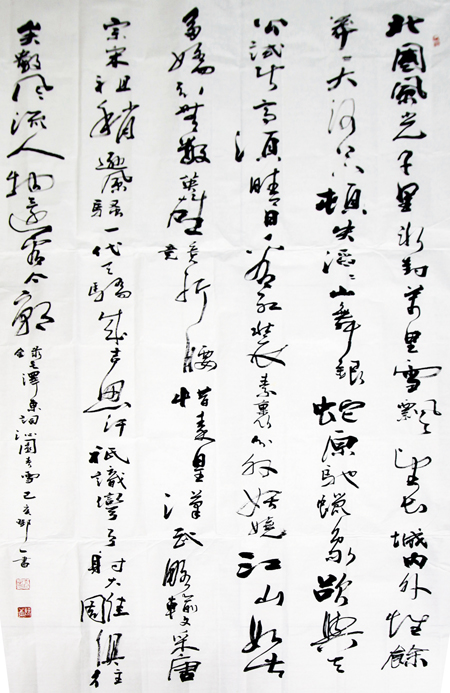 北國風光千里冰封萬里雪飄望長城內外惟餘
莽〻大河上下頓失滔〻山舞銀蛇原馳蠟象欲與天
公試比高須晴日看紅裝素裹分外妖嬈江山如此
多嬌引無數英雄竟折腰惜秦皇漢武略輸文采唐
宗宋祖稍遜風騷一代天驕成吉思汗祇識彎弓射大雕俱往
矣數風流人物還看今朝
毛澤東詞沁園春雪己亥